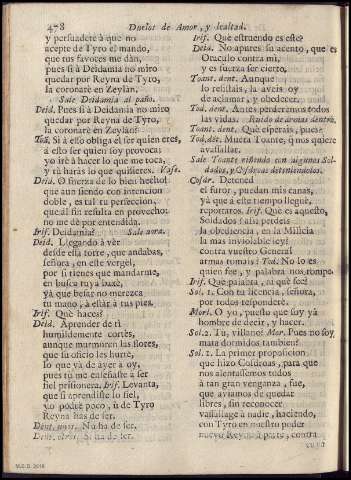 478 Duelos de Amor, y lealtad.
y persuadere à que no
acepte de Tyro el mando,
que tus favores me dàn,
pues si à Deidamia no miro
quedar por Reyna de Tyro,
la coronarè en Zeylàn.
Sale Deidamia al paño.
Deid. Pues si à Deidamia no miro
quedar por Reyna de Tyro,
la coronarè en Zeylàn?
Tod. Si à esso obliga el ser quien eres,
à esto ser quien soy provoca;
yo irè à hacer lo que me toca,
y tu haràs lo que quisieres. Vase.
Deid. O fuerza de lo bien hecho!
que aun siendo con intencion
doble, es tal tu perfeccion,
que al fin resulta en provecho:
no me dè por entendida.
Irif. Deidamia? Sale aora.
Deid. Llegando à vèr
desde essa torre, que andabas,
señora, en este vergel,
por si tienes que mandarme,
en busca tuya baxè,
yà que besar no merezca
tu mano, à estàr à tus pies.
Irif. Què haces?
Deid. Aprender de ti
humildemente cortès,
aunque murmuren las flores,
que su oficio les hurtè,
lo que và de ayer à oy,
pues tù me enseñaste à ser
fiel prisionera. Irif. Levanta,
que si aprendiste lo fiel,
yo podrè poco, ù de Tyro
Reyna has de ser.
Dent. unos. No ha de ser.
Dent. otros. Si ha de ser.
Irif. Què estruendo es este?
Deid. No apures su acento, que es
Oraculo contra mi,
y es fuerza ser cierto.
Toant. dent. Aunque
lo resistais, la aveis oy
de aclamar, y obedecer.
Tod. dent. Antes perderèmos todos
las vidas. Ruido de armas dentro.
Toant. dent. Què esperais, pues?
Tod. den. Muera Toante, que nos quiere
avassallar.
Sale Toante riñendo con algunos Soldados,
y Cosdroas deteniendolos.
Cosdr. Detened
el furor, puedan mis canas,
yà que à este tiempo lleguè,
reportaros. Irif. Què es aquesto,
Soldados? assi perdeis
la obediencia, en la Milicia
la mas inviolable ley?
contra vuestro General
armas tomais? Tod. No lo es
quien fee, y palabra nos rompe.
Irif. Què palabra, ni què fee?
Sol. 1. Con tu licencia, señora,
por todos responderè.
Morl. O yo, puesto que soy yà
hombre de decir, y hacer.
Sol. 2. Tù, villano? Mor. Pues no soy
mata dormidos tambien?
Sol. 2. La primer proposicion
que hizo Cosdroas, para que
nos alentassemos todos
à tan gran venganza, fue,
que aviamos de quedar
libres, sin reconocer
vassallage à nadie, haciendo,
con Tyro en nuestro poder
nuevo Reyno à parte, contra
M.C.D. 2018